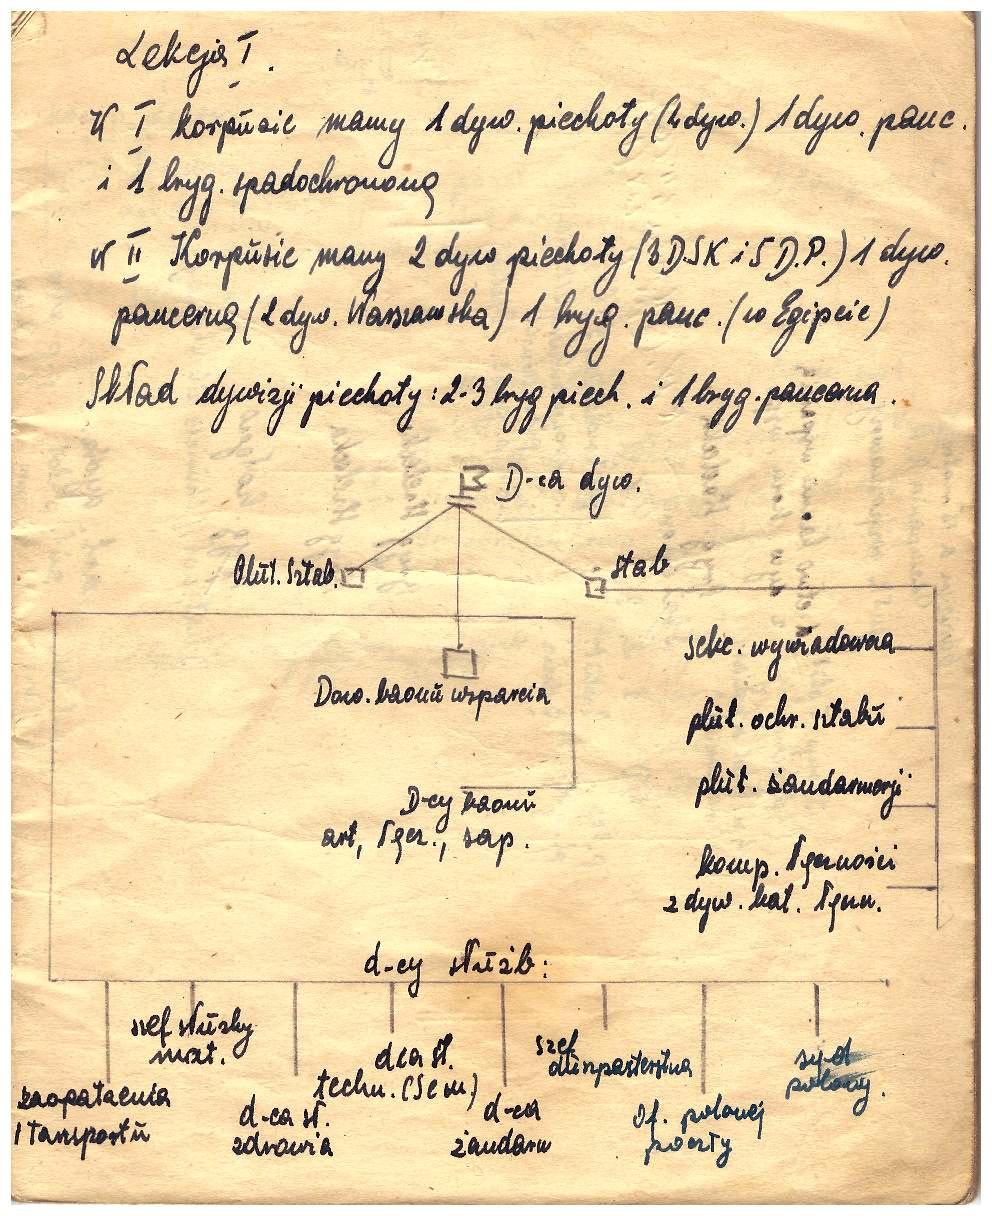 Lekcja I.
W I korpusie mamy 1 dyw. piechoty (4 dyw.) 1 dyw. panc.
i 1 bryg. spadochronową
W II Korpusie mamy 2 dyw piechoty (3 D.S.K i 5 D.P.) 1 dyw.
pancerną (2 dyw. Warszawska) 1 bryg. panc. (w Egipcie)
Skład dywizji piechoty: 2-3 bryg piech. i 1 bryg. pancerna.
D-ca dyw.
Plut. Sztab.
stab
sekc. wywiadowcza
Dow. baonu wsparcia
plut. ochr. sztabu
plut. żandarmerji
D-cy baonu
art, łącz., sap.
komp. łączności
z dyw. bat. łączn.
d-cy służb:
szef służby
mat.
dca sł.
techn.
szef
duszpasterstwa
sąd
polowy.
zaopatrzenia
i transportu
d-ca sł.
zdrowia
d-ca
żandarm
Of. polowej
poczty